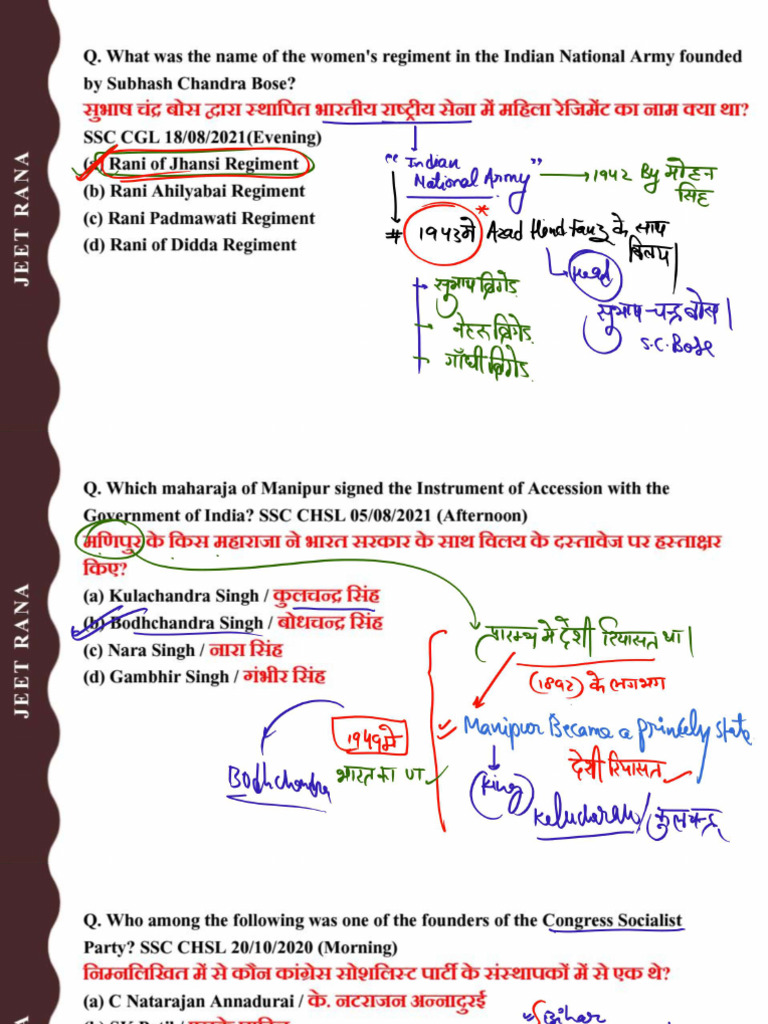 JEET RANA
Q. What was the name of the women's regiment in the Indian National Army founded
by Subhash Chandra Bose?
सुभाष चंद्र बोस द्वारा स्थापित भारतीय राष्ट्रीय सेना में महिला रेजिमेंट का नाम क्या था?
SSC CGL 18/08/2021(Evening)
(a) Rani of Jhansi Regiment
(b) Rani Ahilyabai Regiment
(c) Rani Padmawati Regiment
(d) Rani of Didda Regiment
"Indian
National Army"
1942 By मोहन
सिंह
# 1943 मे * Azad Hind Fauz के साथ
विलय|
Head
सुभाष-चन्द्र बोस|
S.C. Bose
सुभाष ब्रिगेड
नेहरू ब्रिगेड
गाँधी ब्रिगेड
JEET RANA
Q. Which maharaja of Manipur signed the Instrument of Accession with the
Government of India? SSC CHSL 05/08/2021 (Afternoon)
मणिपुर के किस महाराजा ने भारत सरकार के साथ विलय के दस्तावेज पर हस्ताक्षर
किए?
(a) Kulachandra Singh / कुलचन्द्र सिंह
(b) Bodhchandra Singh / बोधचन्द्र सिंह
(c) Nara Singh / नारा सिंह
(d) Gambhir Singh / गंभीर सिंह
प्रारम्भ मे देशी रियासत था|
(1892) के लगभग
Manipur Became a princely state
देशी रियासत
King
/ कुलचन्द्र
1949 मे
भारत का
Bodhchandra
JEET RANA
Q. Who among the following was one of the founders of the Congress Socialist
Party? SSC CHSL 20/10/2020 (Morning)
निम्नलिखित में से कौन कांग्रेस सोशलिस्ट पार्टी के संस्थापकों में से एक थे?
(a) C Natarajan Annadurai / के. नटराजन अन्नादुरई
Bihar